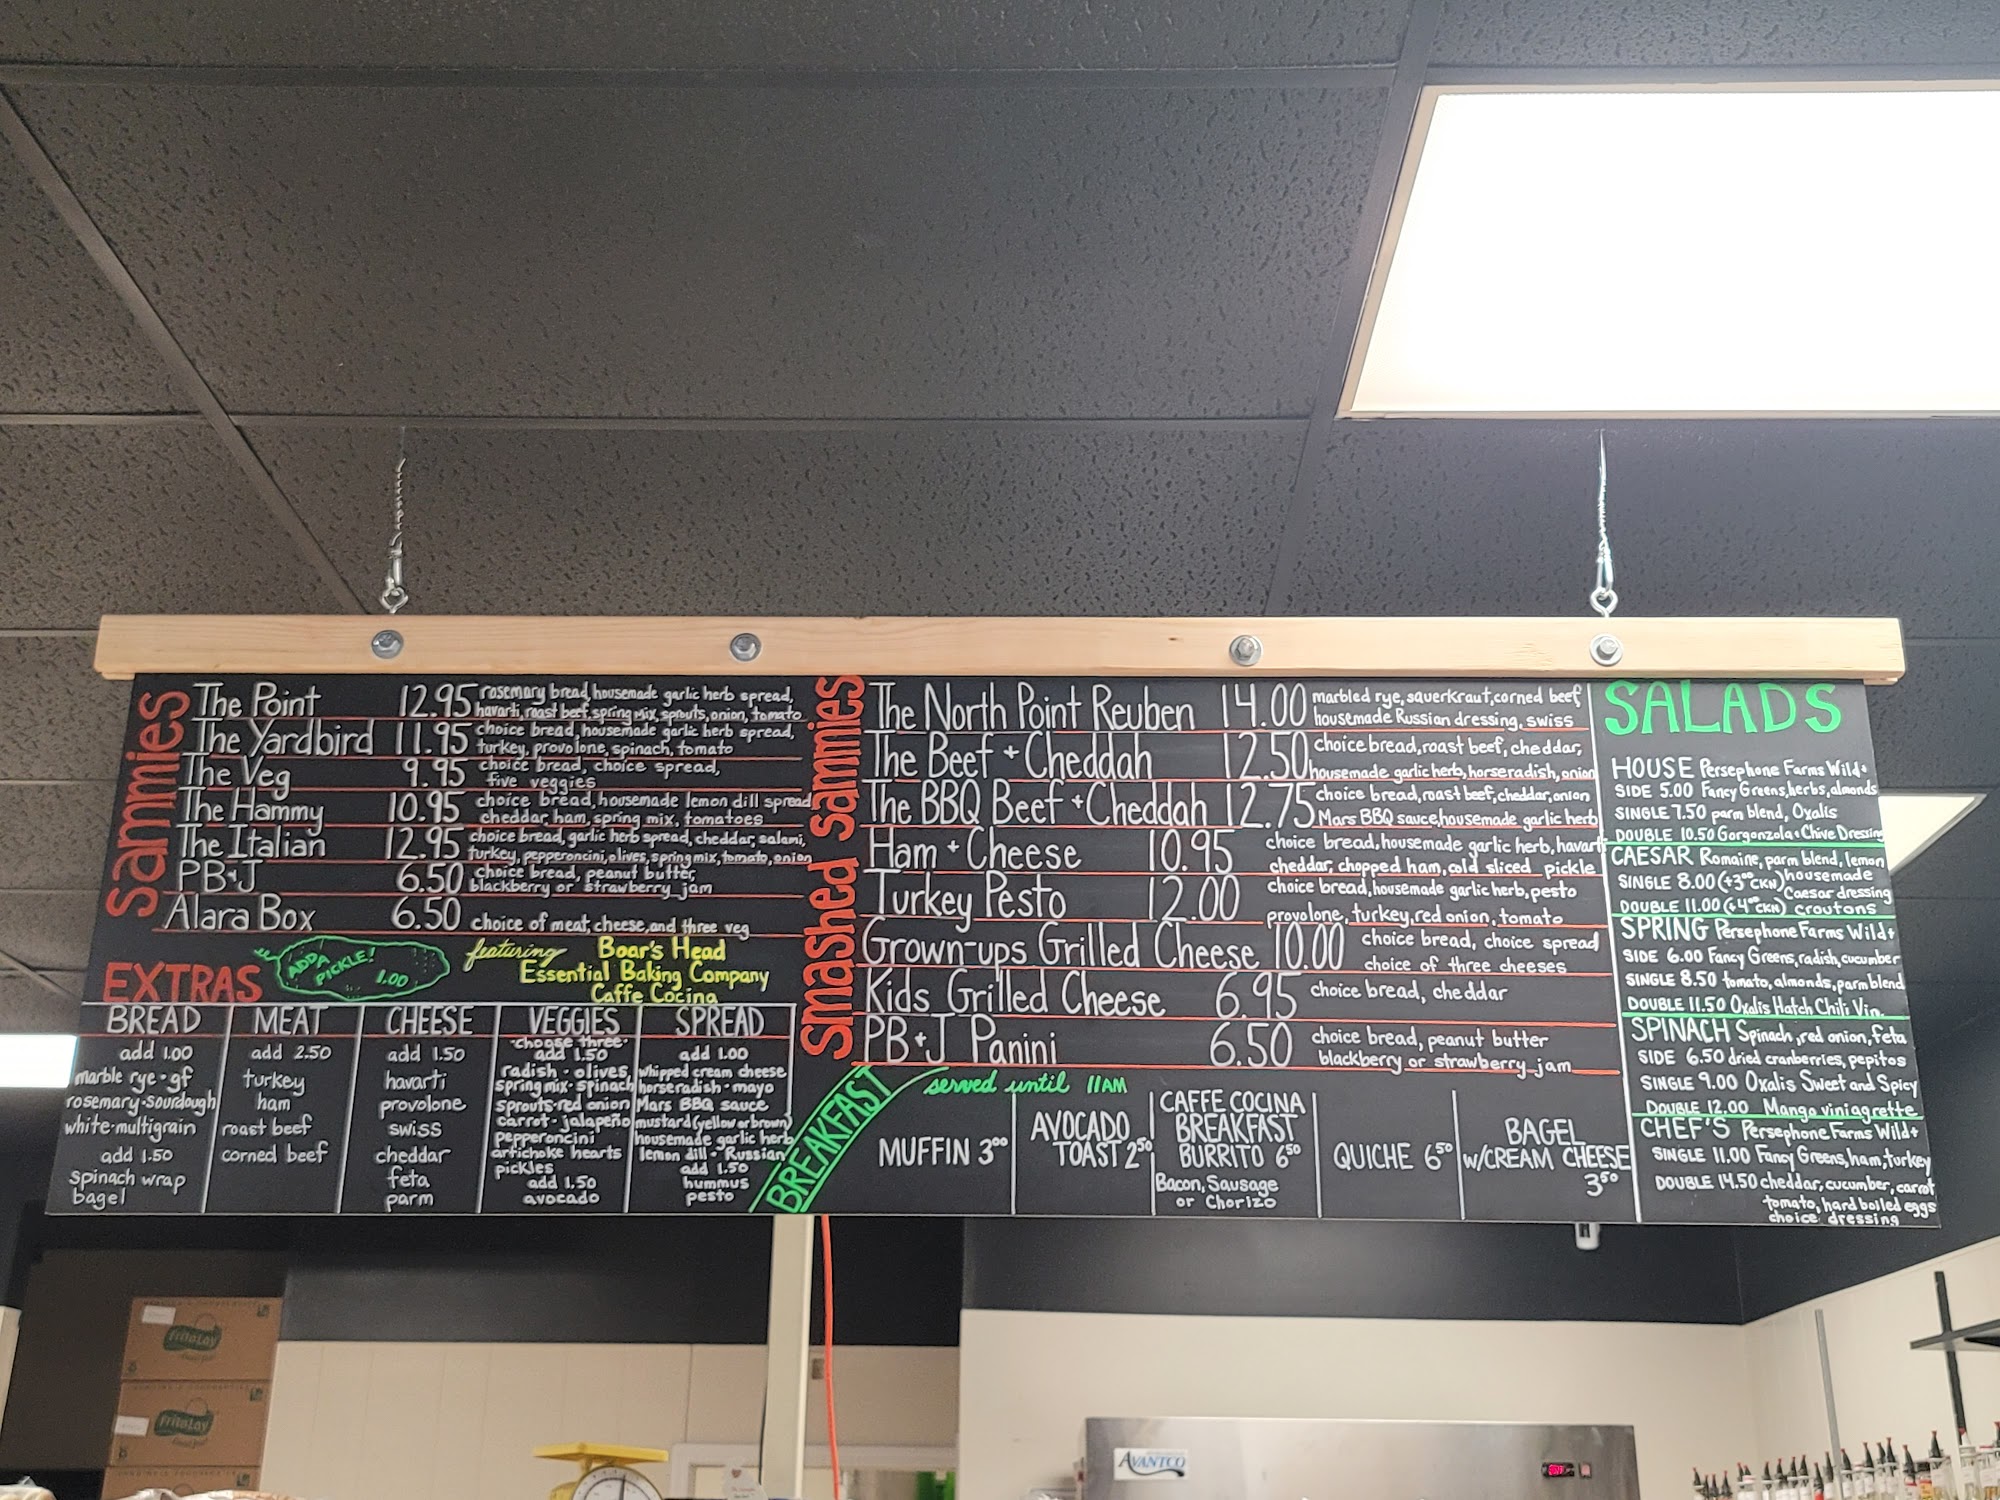 Sammies
The Point 12.95 rosemary bread, housemade garlic herb spread,
havarti, roast beef, spring mix, sprouts, onion, tomato
The Yardbird 11.95 choice bread, housemade garlic herb spread,
turkey, provolone, spinach, tomato
The Veg 9.95 choice bread, choice spread,
five veggies
The Hammy 10.95 choice bread, housemade lemon dill spread
cheddar, ham, spring mix, tomatoes
The Italian 12.95 choice bread, garlic herb spread, cheddar, salami,
turkey, pepperoncini, olives, spring mix, tomato, onion
PB+J 6.50 choice bread, peanut butter,
blackberry or strawberry jam
Alara Box 6.50 choice of meat, cheese, and three veg
EXTRAS
ADD A
PICKLE!
1.00
featuring Boar's Head
Essential Baking Company
Caffe Cocina
BREAD
add 1.00
marble rye · gf
rosemary · sourdough
white · multigrain
add 1.50
spinach wrap
bagel
MEAT
add 2.50
turkey
ham
roast beef
corned beef
CHEESE
add 1.50
havarti
provolone
swiss
cheddar
feta
parm
VEGGIES
·choose three·
add 1.50
radish · olives,
spring mix · spinach
sprouts · red onion
carrot · jalapeño
pepperoncini
artichoke hearts
pickles
add 1.50
avocado
SPREAD
add 1.00
whipped cream cheese
horseradish · mayo
Mars BBQ sauce
mustard (yellow or brown)
housemade garlic herb
lemon dill · Russian
add 1.50
hummus
pesto
Smashed Sammies
The North Point Reuben 14.00 marbled rye, sauerkraut, corned beef,
housemade Russian dressing, swiss
The Beef + Cheddah 12.50 choice bread, roast beef, cheddar,
housemade garlic herb, horseradish, onion
The BBQ Beef + Cheddah 12.75 choice bread, roast beef, cheddar, onion
Mars BBQ sauce, housemade garlic herb
Ham + Cheese 10.95 choice bread, housemade garlic herb, havarti
cheddar, chopped ham, cold sliced pickle
Turkey Pesto 12.00 choice bread, housemade garlic herb, pesto
provolone, turkey, red onion, tomato
Grown-ups Grilled Cheese 10.00 choice bread, choice spread
choice of three cheeses
Kids Grilled Cheese 6.95 choice bread, cheddar
PB+J Panini 6.50 choice bread, peanut butter
blackberry or strawberry jam
BREAKFAST
served until 11AM
MUFFIN 3.00
AVOCADO
TOAST 2.50
CAFFE COCINA
BREAKFAST
BURRITO 6.50
Bacon, Sausage
or Chorizo
QUICHE 6.50
BAGEL
W/CREAM CHEESE
3.50
SALADS
HOUSE Persephone Farms Wild+
SIDE 5.00 Fancy Greens, herbs, almonds
SINGLE 7.50 parm blend, Oxalis
DOUBLE 10.50 Gorgonzola + Chive Dressing
CAESAR Romaine, parm blend, lemon
SINGLE 8.00 (+3.00 CKN) housemade
Caesar dressing
DOUBLE 11.00 (+4.00 CKN) croutons
SPRING Persephone Farms Wild+
SIDE 6.00 Fancy Greens, radish, cucumber
SINGLE 8.50 tomato, almonds, parm blend
DOUBLE 11.50 Oxalis Hatch Chili Vin.
SPINACH Spinach, red onion, feta
SIDE 6.50 dried cranberries, pepitos
SINGLE 9.00 Oxalis Sweet and Spicy
DOUBLE 12.00 Mango viniagrette
CHEF'S Persephone Farms Wild+
SINGLE 11.00 Fancy Greens, ham, turkey
DOUBLE 14.50 cheddar, cucumber, carrot
tomato, hard boiled eggs
choice dressing
FritoLay
FritoLay
AVANTCO